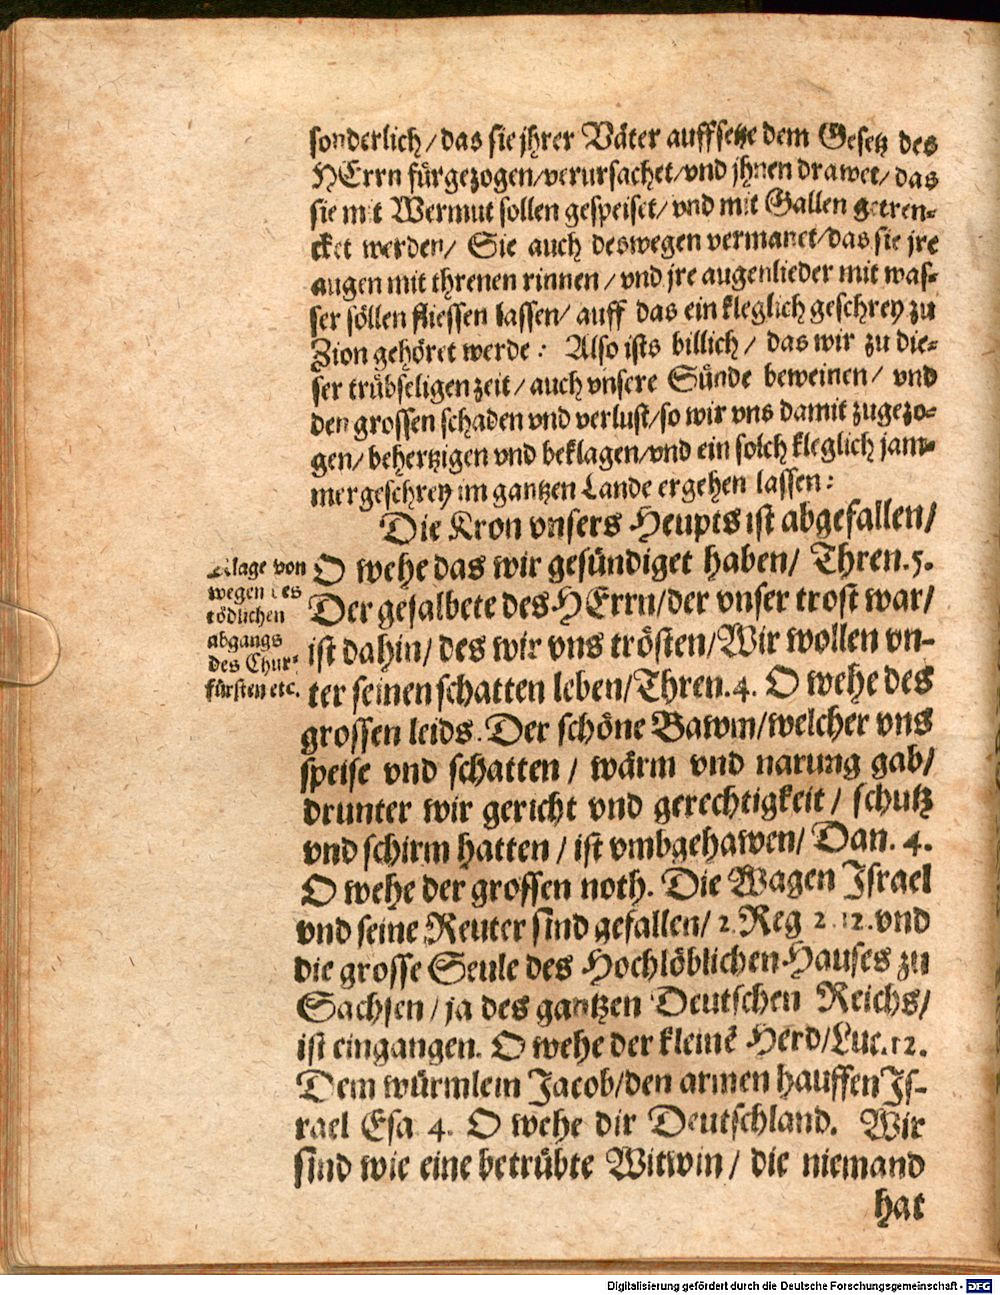 sonderlich/das sie jhrer Väter auffsetze dem Gesetz des
HErrn fürgezogen/verursachet/vnd jhnen drawet/das
sie mit Wermut sollen gespeiset/vnd mit Gallen getren-
cket werden/ Sie auch deswegen vermanet/das sie jre
augen mit threnen rinnen/vnd jre augenlieder mit was-
ser söllen fliessen lassen/ auff das ein kleglich geschrey zu
Zion gehöret werde: Also ists billich/ das wir zu die-
ser trübseligen zeit/auch vnsere Sünde beweinen/ vnd
den grossen schaden vnd verlust/so wir vns damit zugezo-
gen/behertzigen vnd beklagen/vnd ein solch kleglich jam-
mergeschrey im gantzen Lande ergehen lassen:
Die Kron vnsers Heupts ist abgefallen/
O wehe das wir gesündiget haben/ Thren.5.
Der gesalbete des HErrn/der vnser trost war/
ist dahin/ des wir vns trösten/Wir wollen vn-
ter seinen schatten leben/Thren.4. O wehe des
grossen leids. Der schöne Bawm/welcher vns
speise vnd schatten/ wärm vnd narung gab/
drunter wir gericht vnd gerechtigkeit/ schutz
vnd schirm hatten/ist vmbgehawen/ Dan. 4.
O wehe der grossen noth. Die Wagen Israel
vnd seine Reuter sind gefallen/ 2.Reg 2.12.vnd
die grosse Seule des Hochlöblichen Hauses zu
Sachsen/ja des gantzen Deutschen Reichs/
ist eingangen. O wehe der kleinē Herd/Luc.12.
Dem würmlein Jacob/den armen hauffen Is-
rael Esa 4. O wehe dir Deutschland. Wir
sind wie eine betrübte Witwin/ die niemand
hat
Klage von
wegen des
tödlichen
abgangs
des Chur-
fürsten etc.
Digitalisierung gefördert durch die Deutsche Forschungsgemeinschaft - DFG